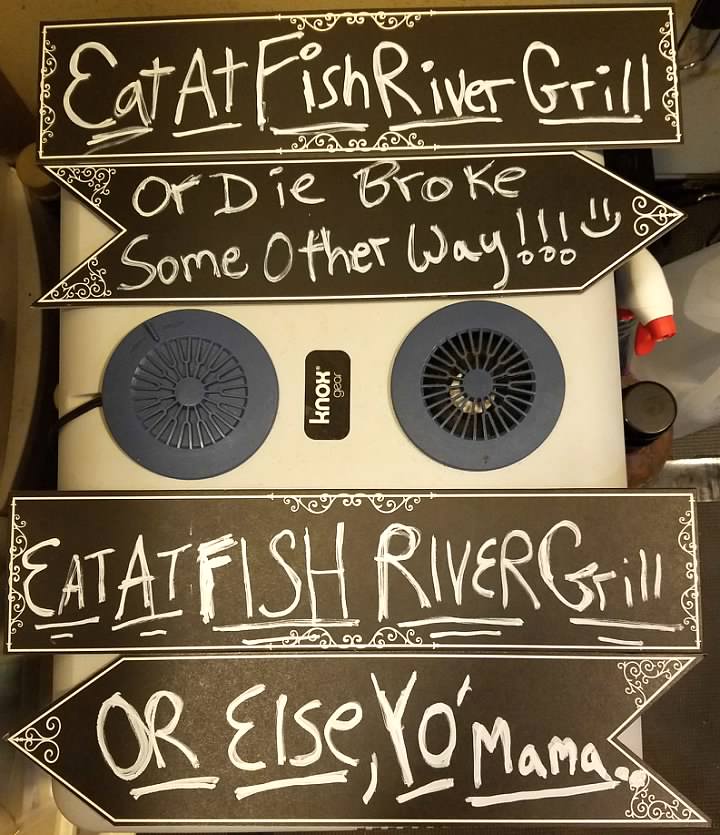 Eat At Fish River Grill
Or Die Broke
Some Other Way!!! =)
knox®
gear
EAT AT FISH RIVER Grill
OR ElSe, Yo' Mama.